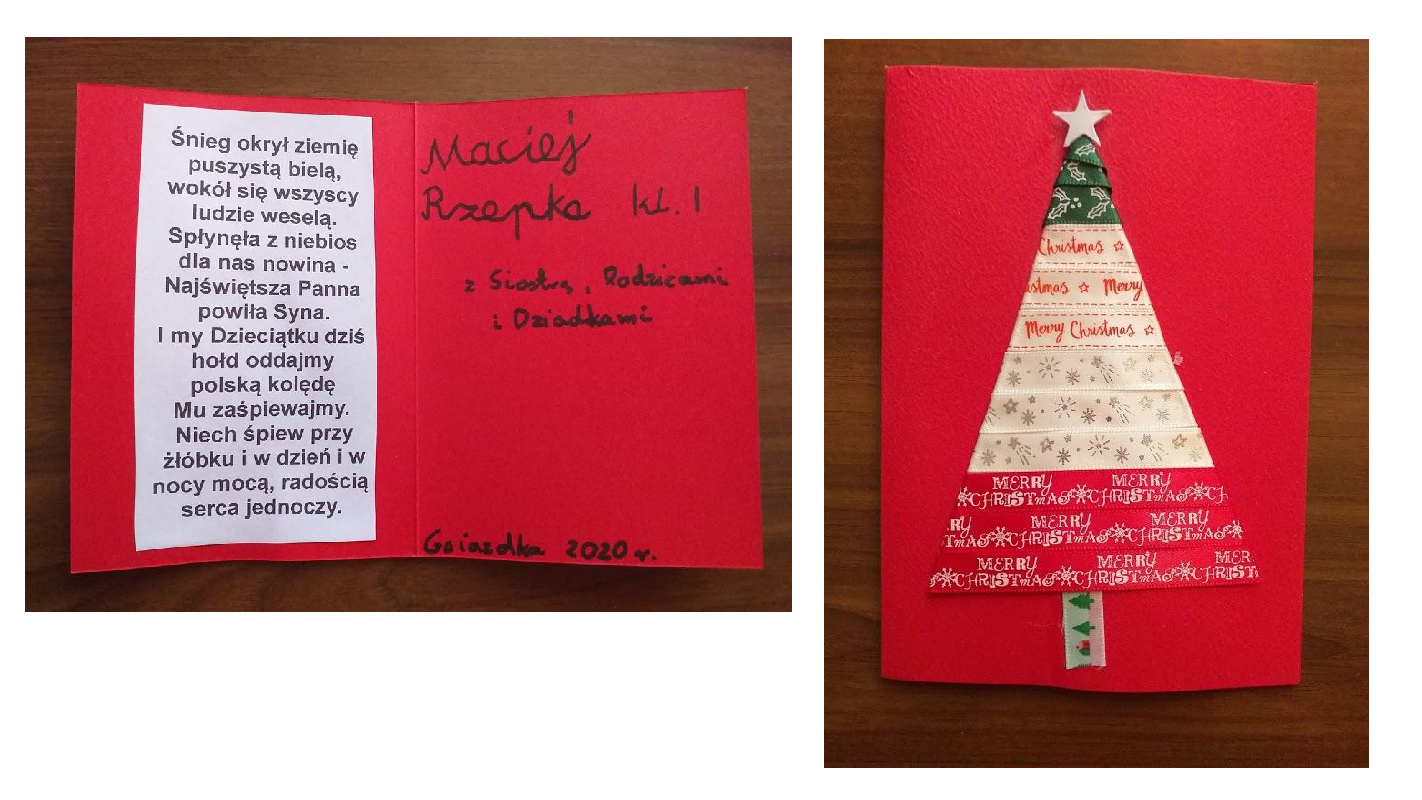 Śnieg okrył ziemię
puszystą bielą,
wokół się wszyscy
ludzie weselą.
Spłynęła z niebios
dla nas nowina -
Najświętsza Panna
powiła Syna.
I my Dzieciątku dziś
hołd oddajmy
polską kolędę
Mu zaśpiewajmy.
Niech śpiew przy
żłóbku i w dzień i w
nocy mocą, radością
serca jednoczy.
Maciej
Rzepka kl. I
z Siostrą, Rodzicami
i Dziadkami
Gwiazdka 2020 r.
Christmas
stmas Merry
Merry Christmas
MERRY MERRY
CHRISTMAS CHRISTMAS CH
RY MERRY MERRY
TMAS CHRISTMAS CHRISTMAS
MERRY MERRY MER
CHRISTMAS CHRISTMAS CHRIST